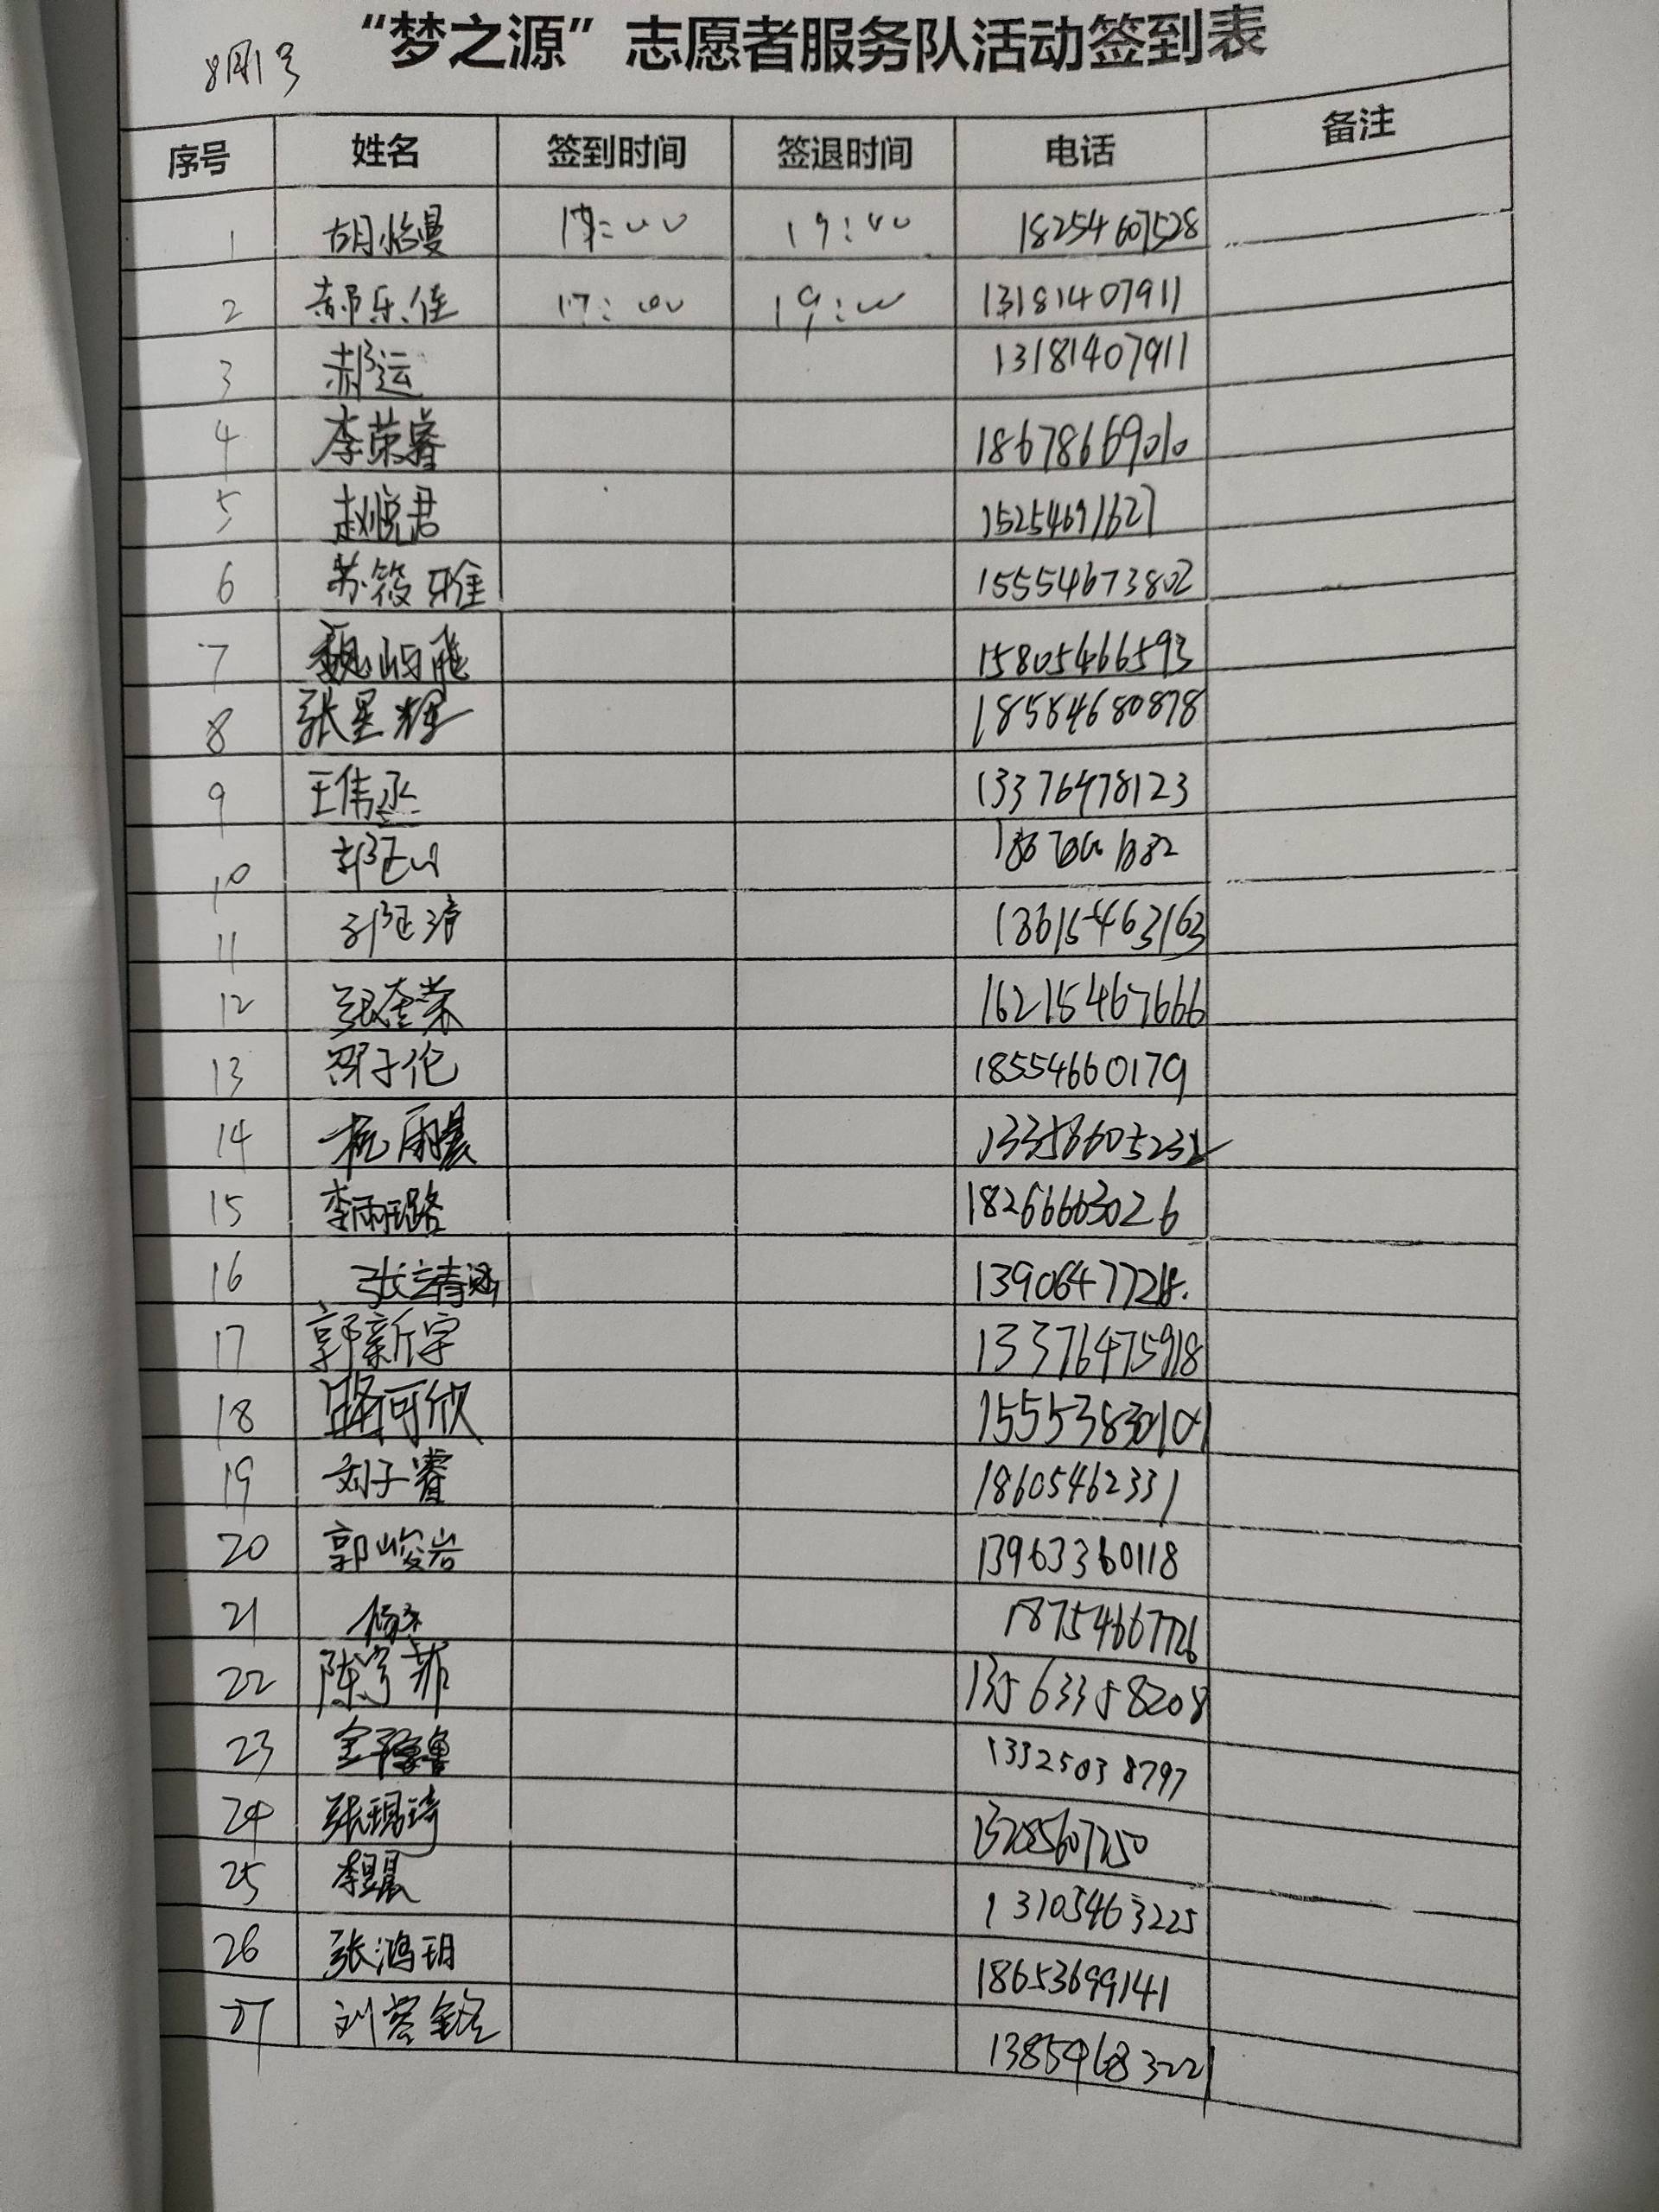 8月1号
“梦之源”志愿者服务队活动签到表
序号 姓名 签到时间 签退时间 电话 备注
1 胡怡曼 17:00 19:00 18254607528
2 郝乐佳 17:00 19:00 13181407911
3 郝运 13181407911
4 李荣睿 18678669010
5 赵悦君 15254691627
6 苏筱雅 15554673802
7 魏屿彤 15805466593
8 张星辉 18554680878
9 王伟丞 13376478123
10
11 13615463163
12 张奎荣 16215467666
13 邵子伦 18554660179
14 杭雨晨
15 李雨璐 18266663026
16 张靖涵
17 郭新宇 13376475918
18 路可欣
19 刘子睿 18605462331
20 郭峻岩 13963360118
21 杨杰 18754667726
22 陈宇菲 13563358208
23 13325038797
24 张琨琦 13285607250
25 李昱晨 13105463225
26 张鸿玥 18653699141
27 刘蓉铭 13854683221